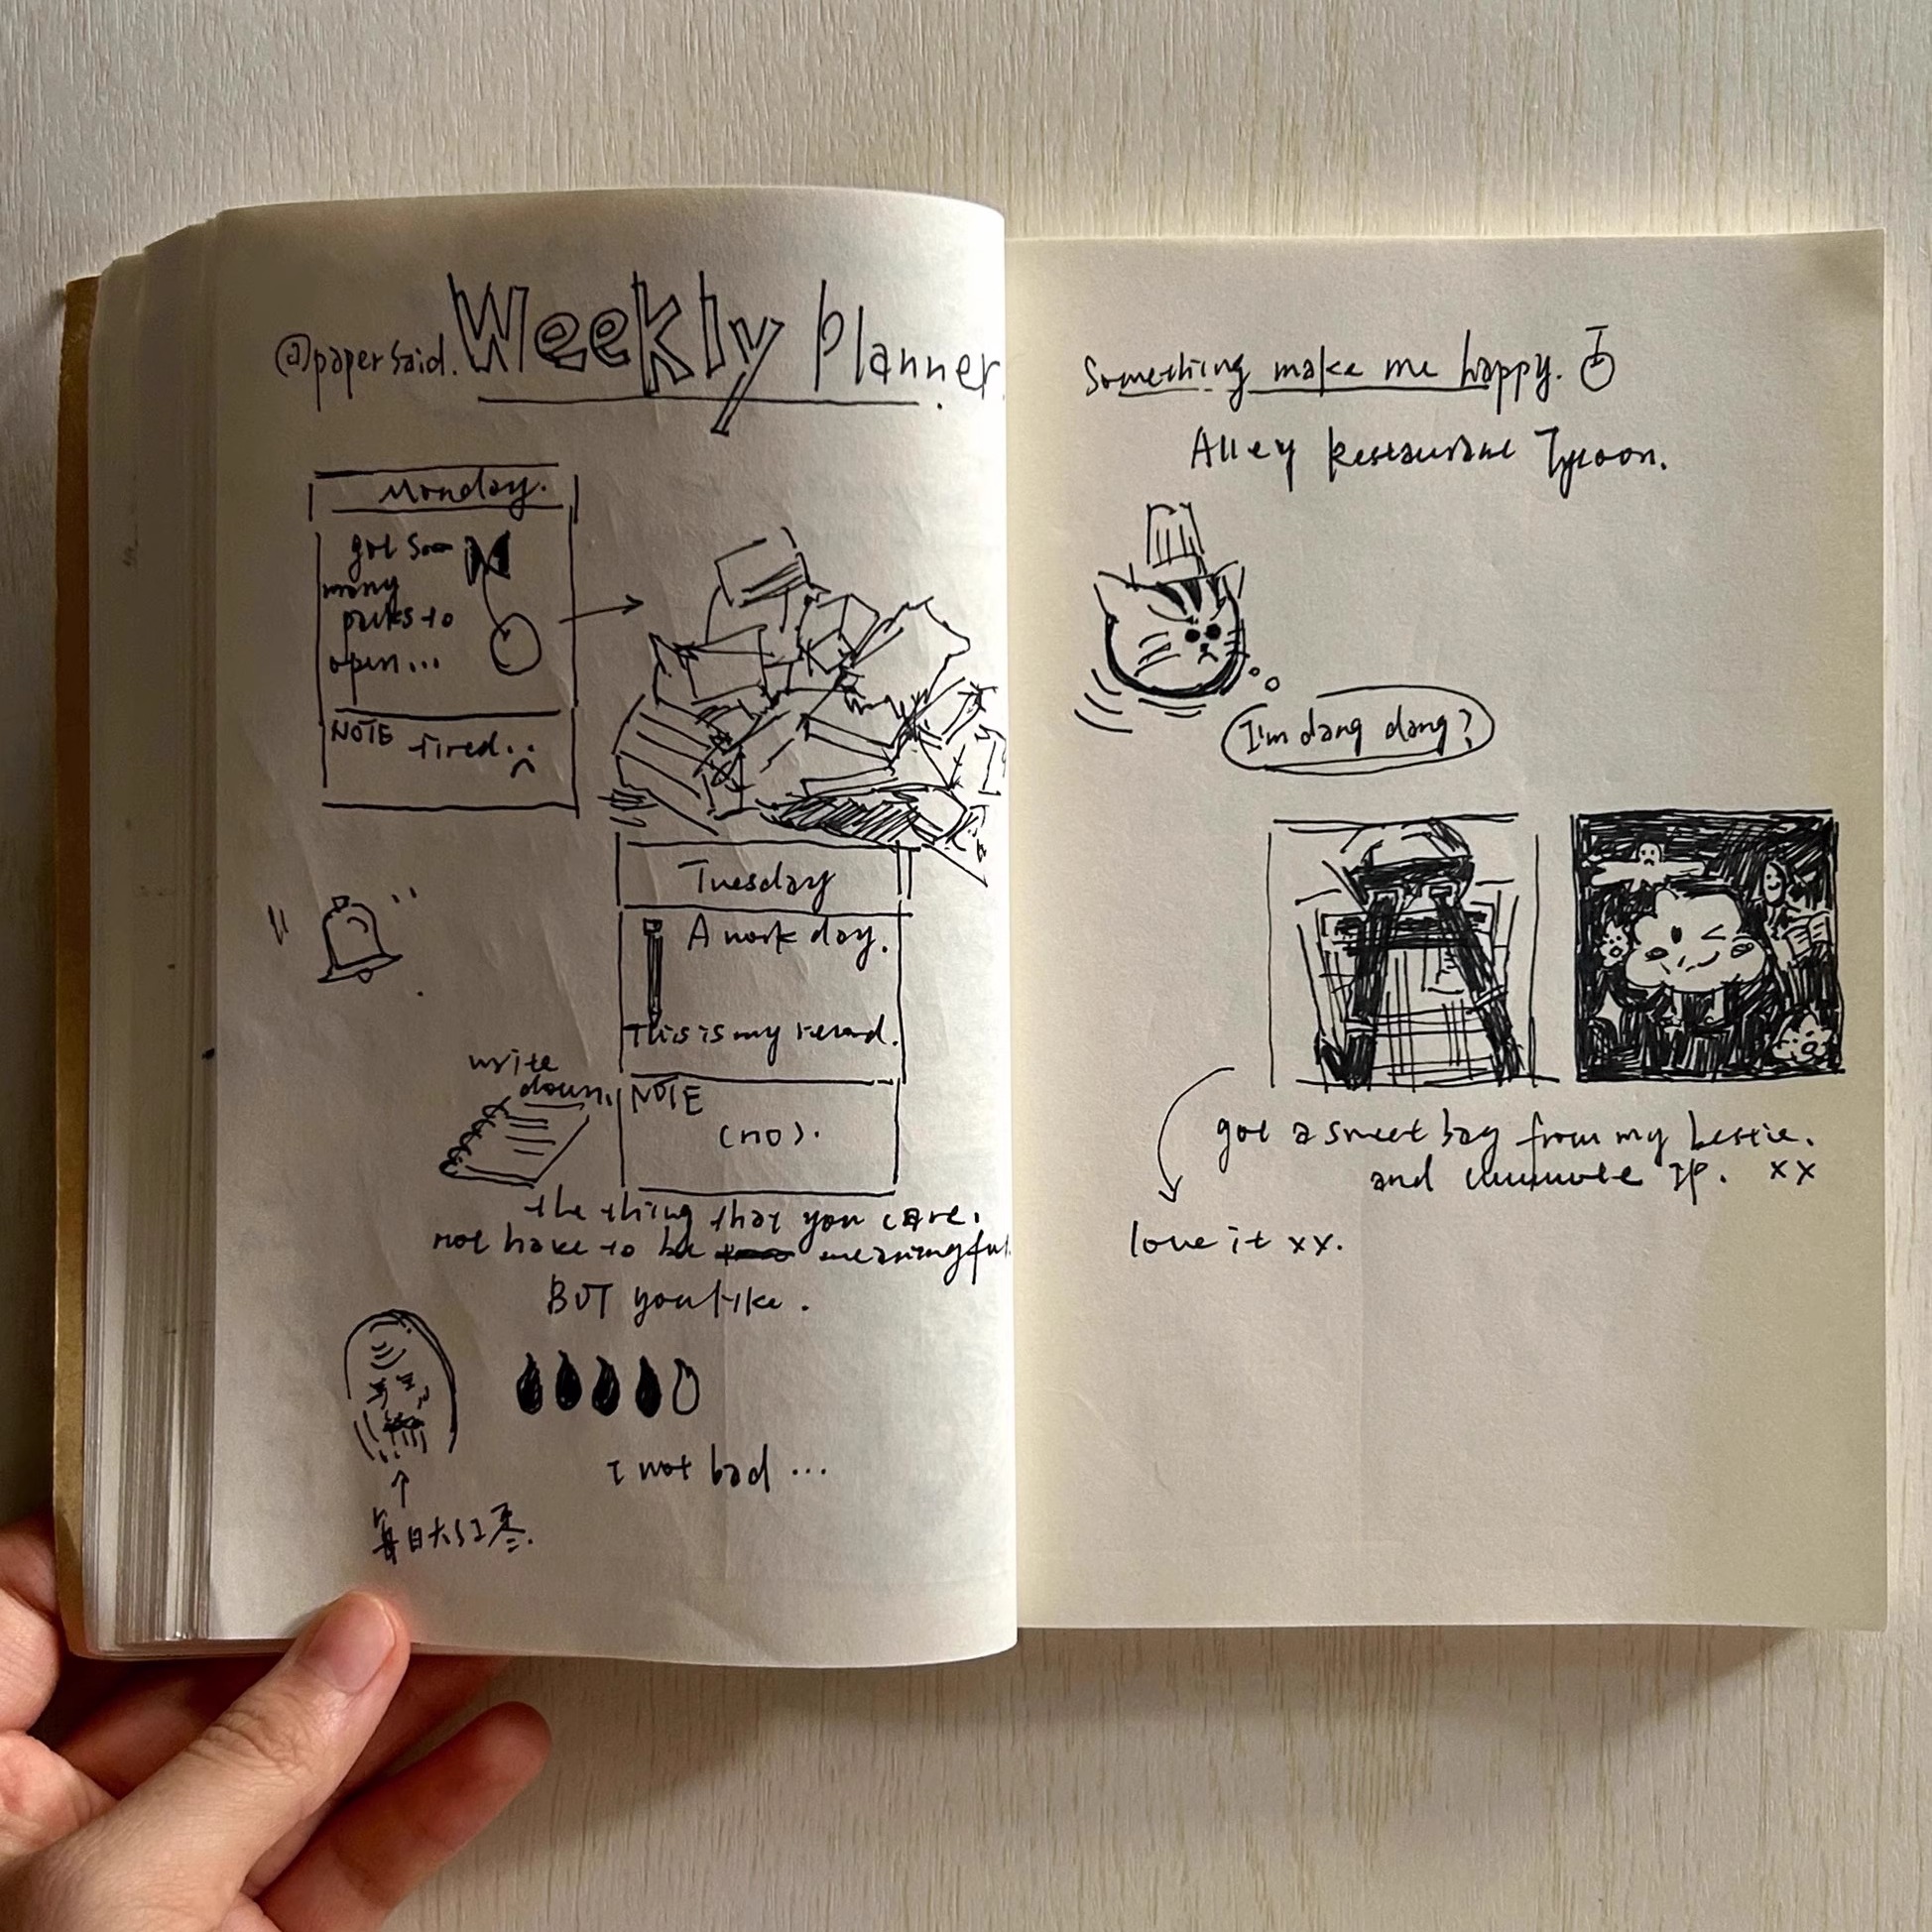 @papersaid. Weekly Planner.
Monday.
got soo
many
to
open...
NOTE tired..
Tuesday
A work day.
This is my
NOTE
(no).
write
down.
the thing that you care.
not have to be meaningful
BUT you like.
I not bad ...
每日大红枣.
Something make me happy.
Alley Restaurant Tycoon.
I'm dang dang?
got a sweet bag from my bestie.
and
xx
love it xx.